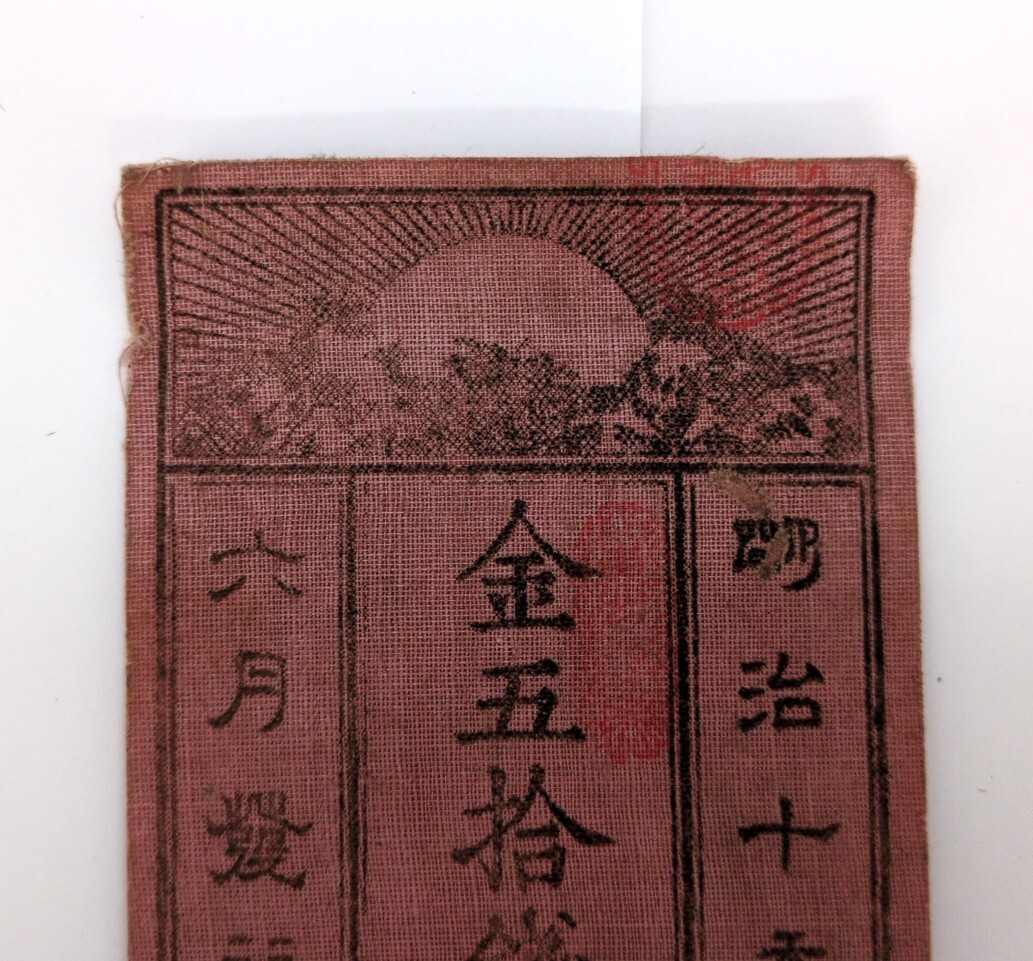 朙治十
金五拾錢
六月發